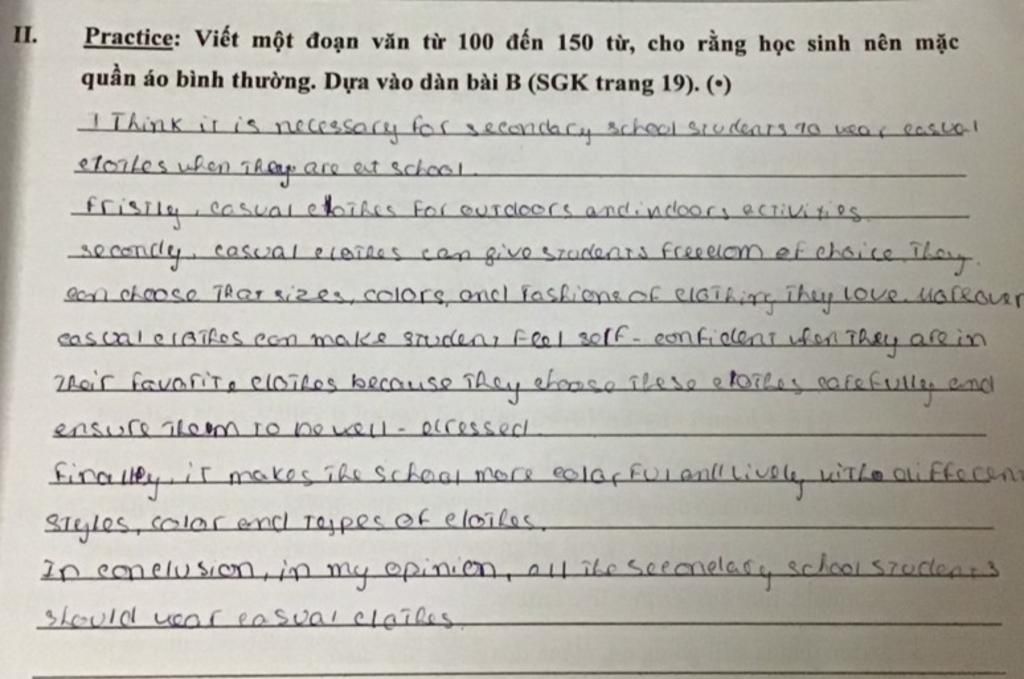 II. Practice: Viết một đoạn văn từ 100 đến 150 từ, cho rằng học sinh nên mặc
quần áo bình thường. Dựa vào dàn bài B (SGK trang 19). (•)
I Think it is necessary for secondary school students to wear casual
clothes when they are at school.
Fristly, casual clothes for outdoors and indoors activities.
secondly, casual clothes can give students freedom of choice. They
can choose that sizes, colors, and fashions of clothing they love. Moreover
casual clothes can make student feel self-confident when they are in
their favorite clothes because they choose these clothes carefully and
ensure them to be well-dressed.
Finalley, it makes the school more colorful and lively with differen
styles, color and types of clothes.
In conclusion, in my opinion, all the secondary school students
should wear casual clothes.